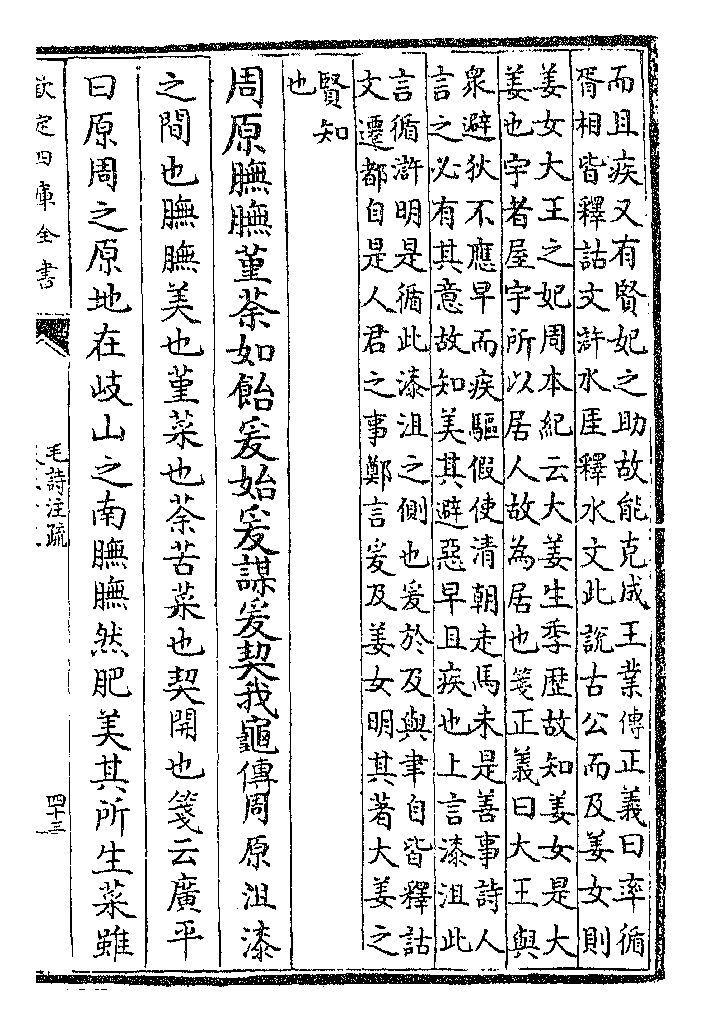 而且疾又有賢妃之助故能克成王業傳正義曰率循
胥相皆釋詁文滸水厓釋水文此說古公而及姜女則
姜女大王之妃周本紀云大姜生季歴故知姜女是大
姜也宇者屋宇所以居人故為居也箋正義曰大王與
衆避狄不應早而疾驅假使清朝走馬未是善事詩人
言之必有其意故知美其避惡早且疾也上言漆沮此
言循滸明是循此漆沮之側也爰於及與聿自皆釋詁
文遷都自是人君之事鄭言爰及姜女明其著大姜之
賢知
也
周原膴膴堇荼如飴爰始爰謀爰契我龜傳周原沮漆
之間也膴膴美也堇菜也荼苦菜也契開也箋云廣平
曰原周之原地在岐山之南膴膴然肥美其所生菜雖
欽定四庫全書
毛詩注疏
四十三